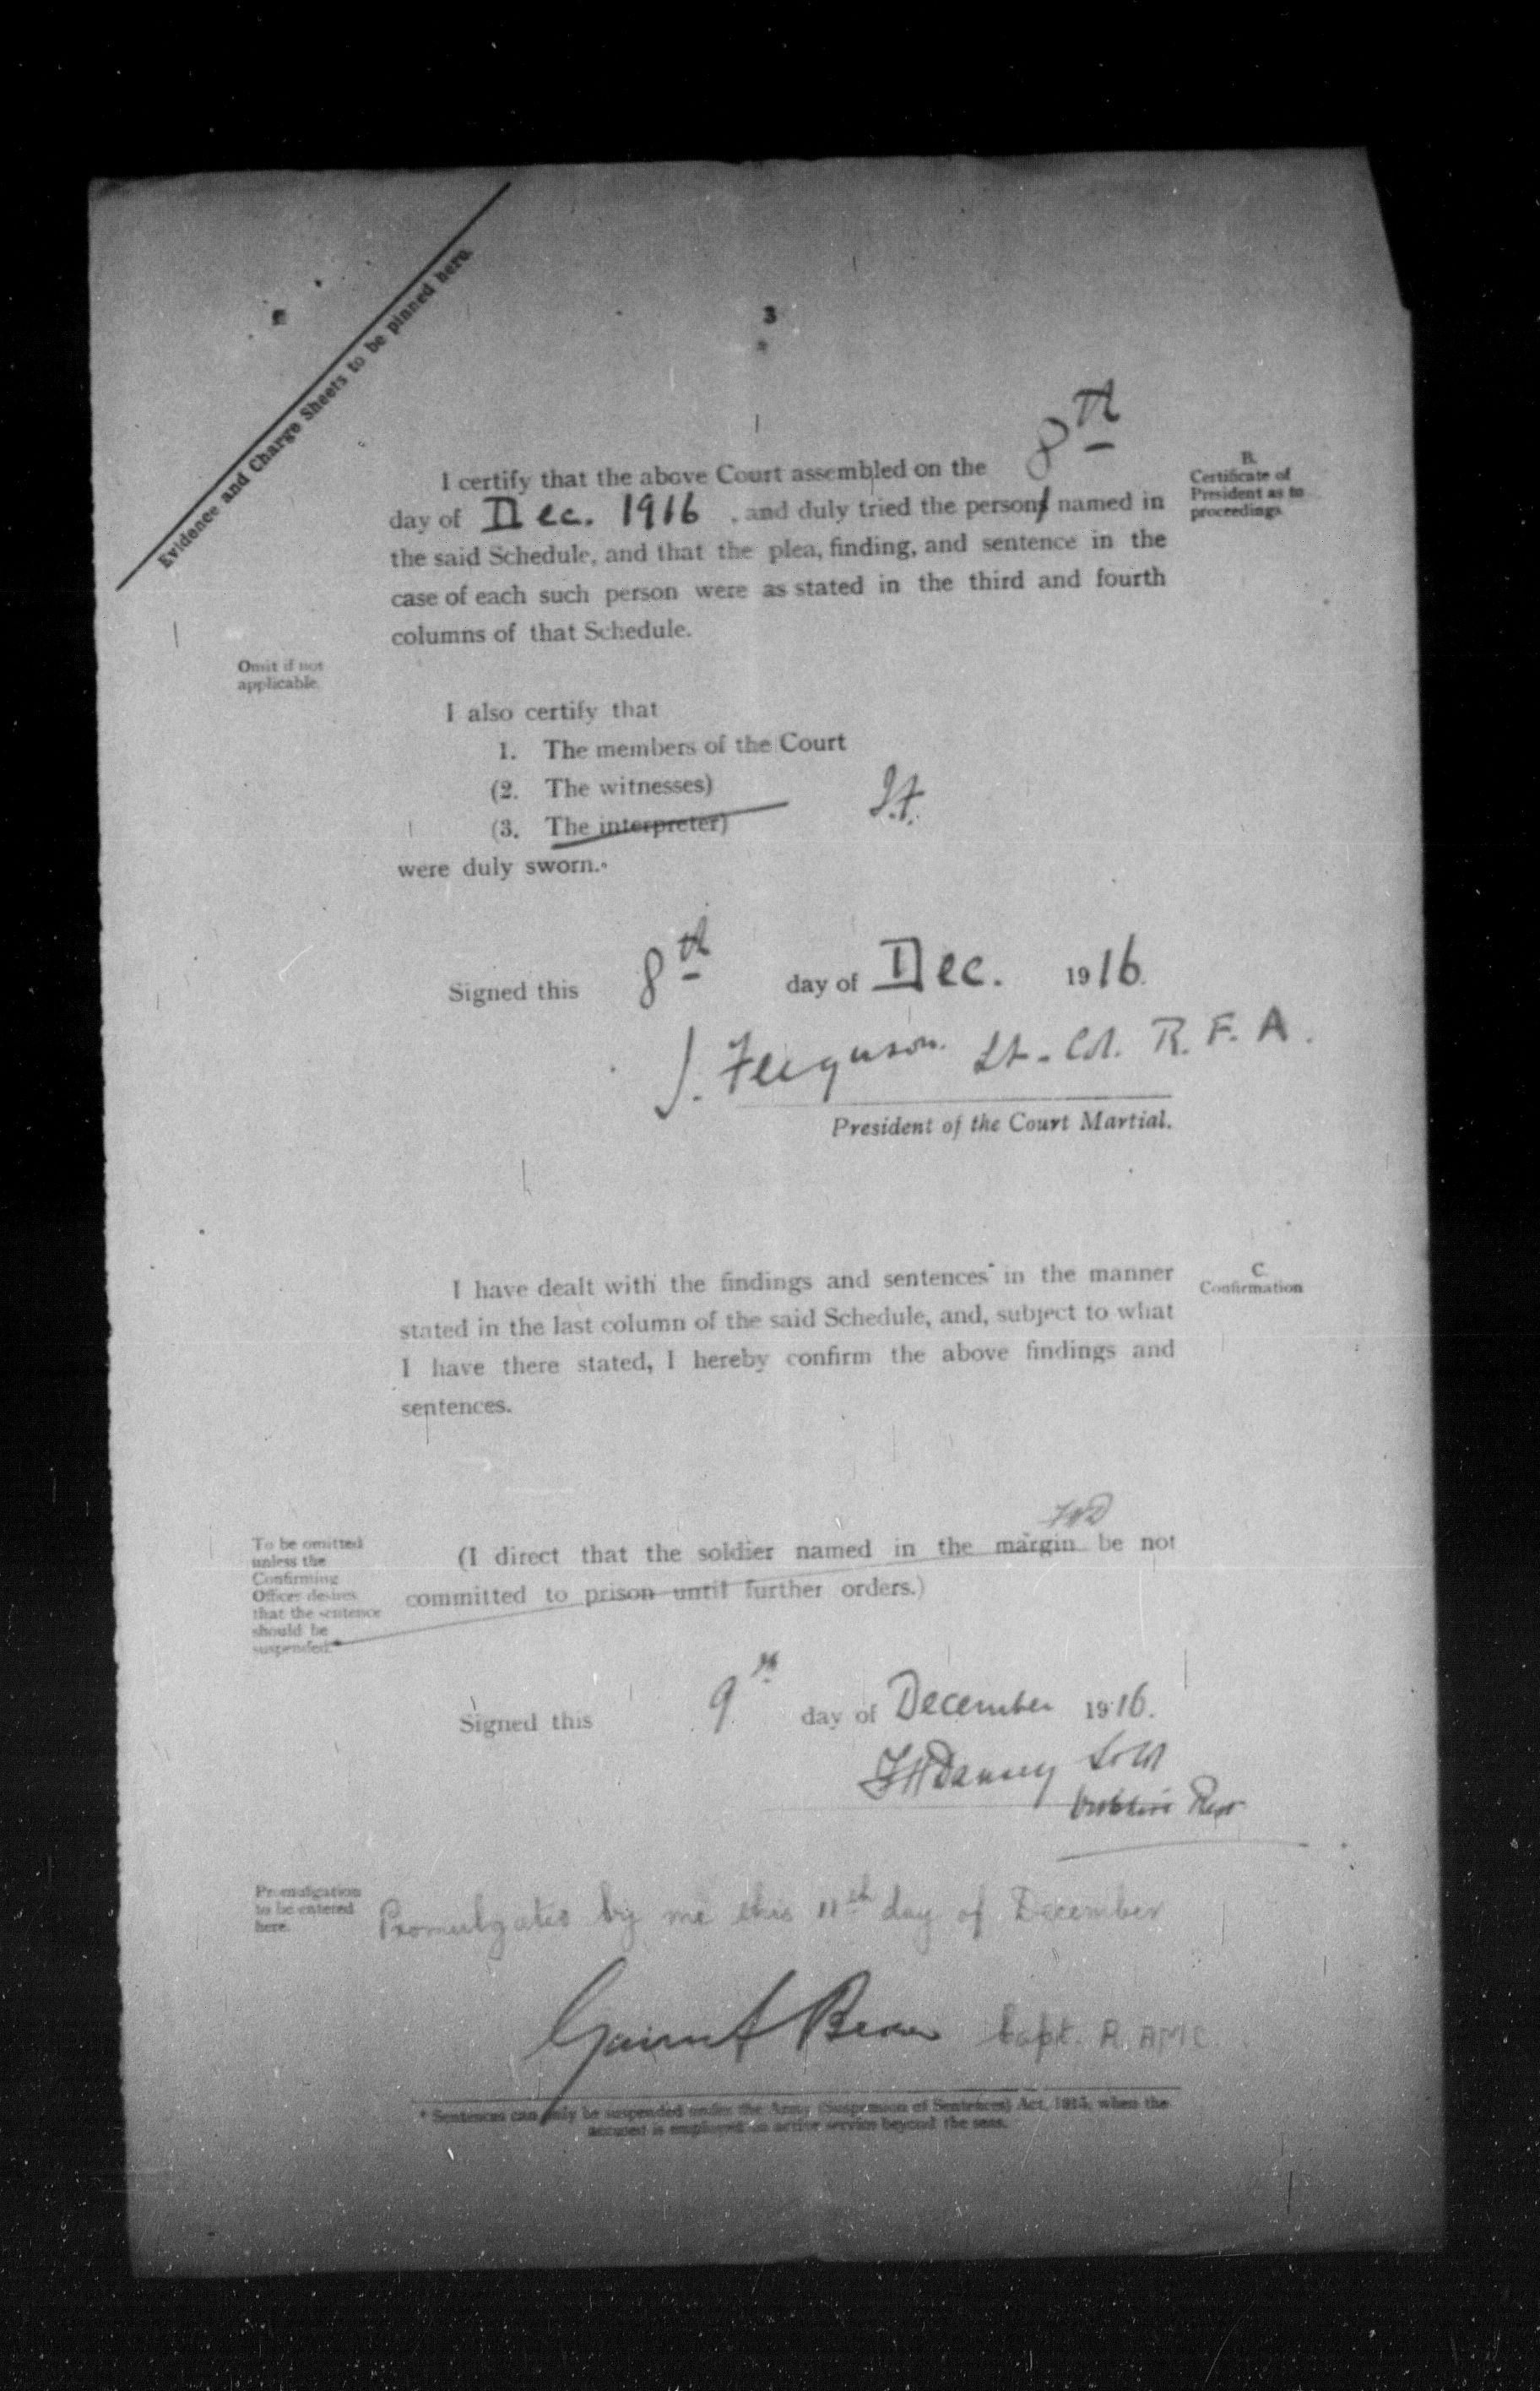 Evidence and Charge Sheets to be pinned here.
3
I certify that the above Court assembled on the 8th
day of Dec. 1916, and duly tried the person named in
the said Schedule, and that the plea, finding, and sentence in the
case of each such person were as stated in the third and fourth
columns of that Schedule.
B.
Certificate of
President as to
proceedings.
Omit if not
applicable.
I also certify that
1. The members of the Court
(2. The witnesses)
(3. The interpreter)
J.F.
were duly sworn.
Signed this 8th day of Dec. 1916.
J. Ferguson Lt-Col. R.F.A.
President of the Court Martial.
I have dealt with the findings and sentences in the manner
stated in the last column of the said Schedule, and, subject to what
I have there stated, I hereby confirm the above findings and
sentences.
C.
Confirmation
To be omitted
unless the
Confirming
Officer desires
that the sentence
should be
suspended.*
(I direct that the soldier named in the margin be not
committed to prison until further orders.)
Signed this 9th day of December 1916.
Promulgation
to be entered
here.
Promulgated by me this 11th day of December
Capt. R.AMC.
* Sentences can only be suspended under the Army (Suspension of Sentences) Act, 1915, when the
accused is employed on active service beyond the seas.